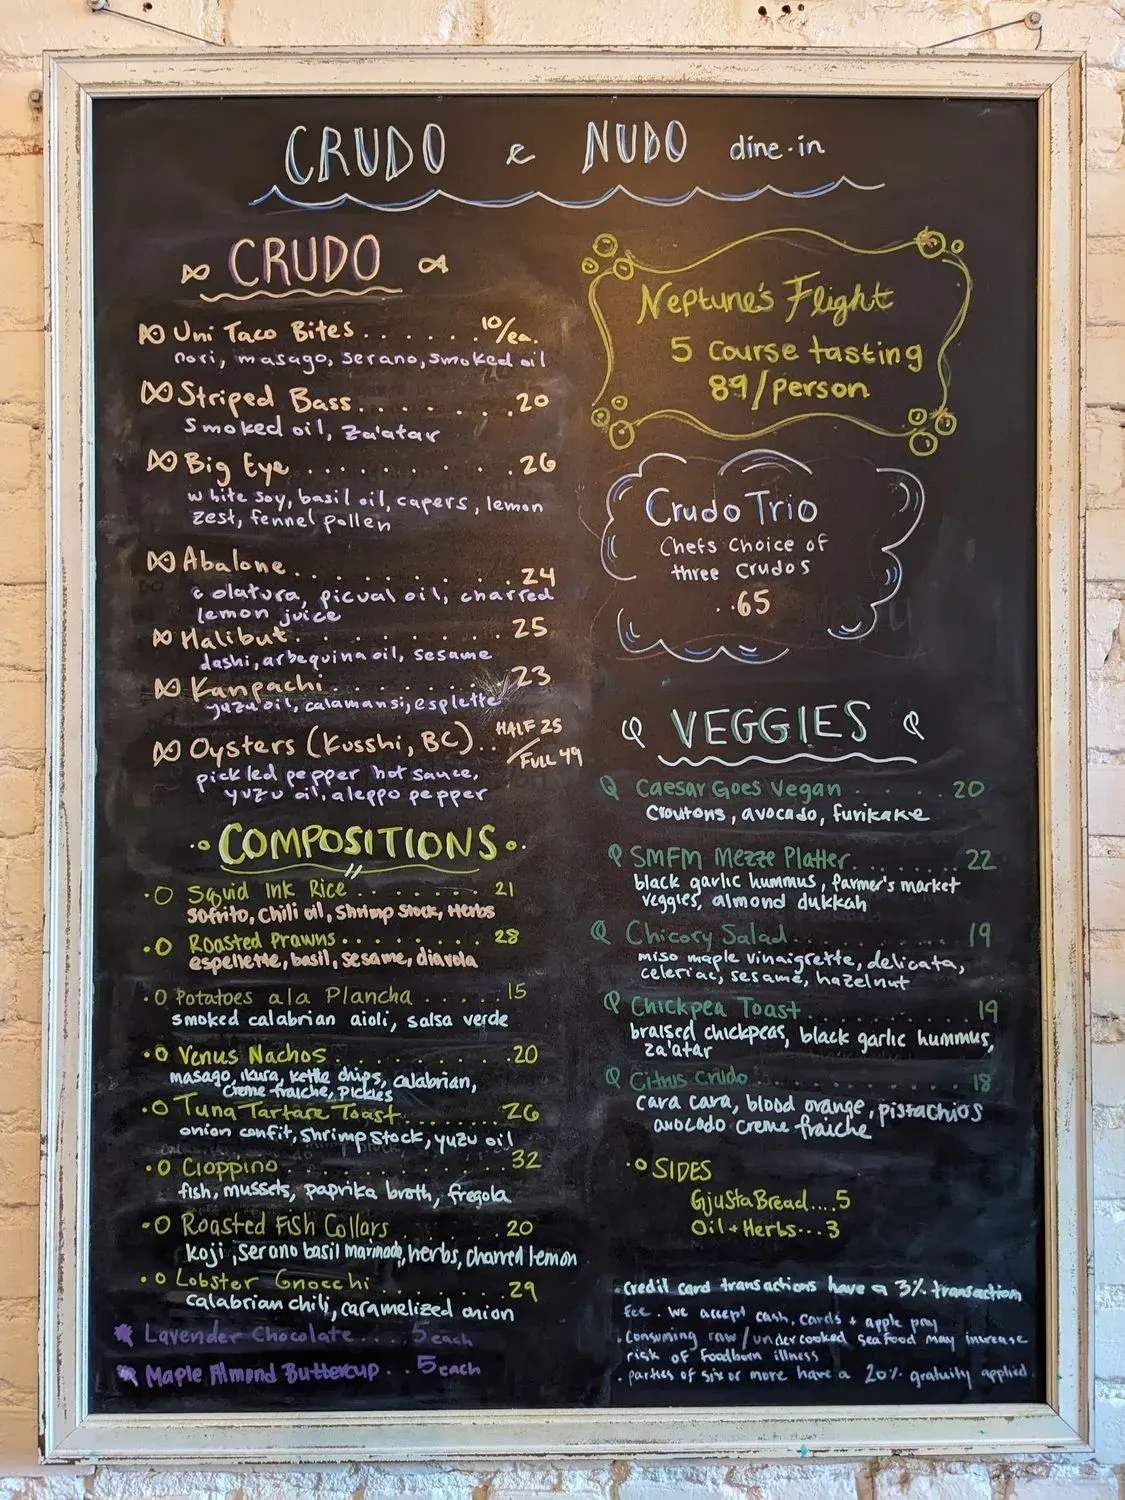 CRUDO & NUDO dine-in
CRUDO
Uni Taco Bites . . . . . . 10/ea.
nori, masago, serano, smoked oil
Striped Bass . . . . . . . 20
smoked oil, za'atar
Big Eye . . . . . . . . . . 26
white soy, basil oil, capers, lemon
zest, fennel pollen
Abalone . . . . . . . . . . 24
colatura, picual oil, charred
lemon juice
Halibut . . . . . . . . . . 25
dashi, arbequina oil, sesame
Kanpachi . . . . . . . . . 23
yuzu oil, calamansi, esplette
Oysters (Kusshi, BC) . . HALF 25
/FULL 49
pickled pepper hot sauce,
yuzu oil, aleppo pepper
COMPOSITIONS
Squid Ink Rice . . . . . . . 21
sofrito, chili oil, shrimp stock, Herbs
Roasted Prawns . . . . . . . 28
espellette, basil, sesame, diavola
Potatoes a la Plancha . . . . . 15
smoked calabrian aioli, salsa verde
Venus Nachos . . . . . . . . 20
masago, ikura, kettle chips, calabrian,
creme fraiche, pickles
Tuna Tartare Toast . . . . . . . 26
onion confit, shrimp stock, yuzu oil
Cioppino . . . . . . . . . . 32
fish, mussels, paprika broth, fregola
Roasted Fish Collars . . . . . 20
koji, serono basil marinade, herbs, charred lemon
Lobster Gnocchi . . . . . . . 29
calabrian chili, caramelized onion
Lavender Chocolate . . . 5 each
Maple Almond Buttercup . . 5 each
Neptune's Flight
5 Course tasting
89/person
Crudo Trio
Chefs Choice of
three Crudos
. . 65
VEGGIES
Caesar Goes Vegan . . . . . 20
Croutons, avocado, furikake
SMFM Mezze Platter . . . . . . . 22
black garlic hummus, farmer's market
veggies, almond dukkah
Chicory Salad . . . . . . . . . 19
miso maple vinaigrette, delicata,
celeriac, sesame, hazelnut
Chickpea Toast . . . . . . . . . 19
braised chickpeas, black garlic hummus,
za'atar
Citrus Crudo . . . . . . . . . . 18
cara cara, blood orange, pistachios
avocado creme fraiche
SIDES
Gjusta Bread....5
Oil + Herbs...3
. credit card transactions have a 3% transaction
Fee. We accept cash, cards + apple pay
. Consuming raw/undercooked seafood may increase
risk of foodborn illness
. parties of six or more have a 20% gratuity applied